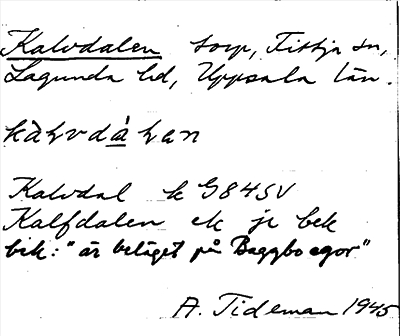 Kalvdalen torp, Fittja sn,
Lagunda hd, Uppsala län.
kàlvdálan
Kalvdal k G84SV
Kalfdalen ek je bek
bek: "är beläget på Baggbo egor"
A. Tideman 1945